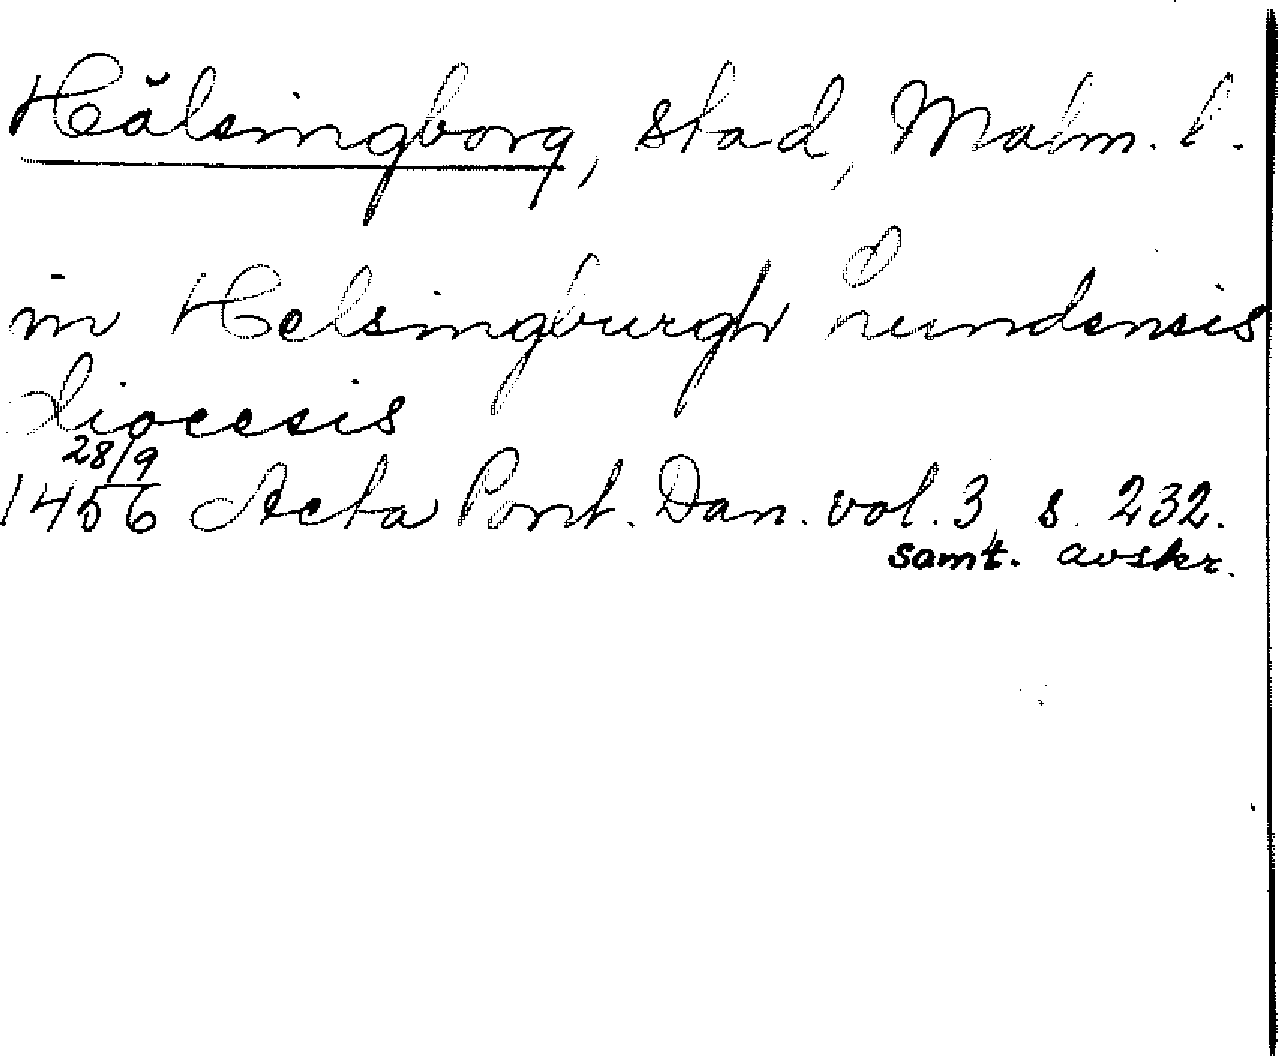 Hälsingborg, stad, Malm. l.
in Helsingburgh lundensis
diocesis
28/9
1456 Acta Pont. Dan. vol. 3 s. 232.
samt. avskr.